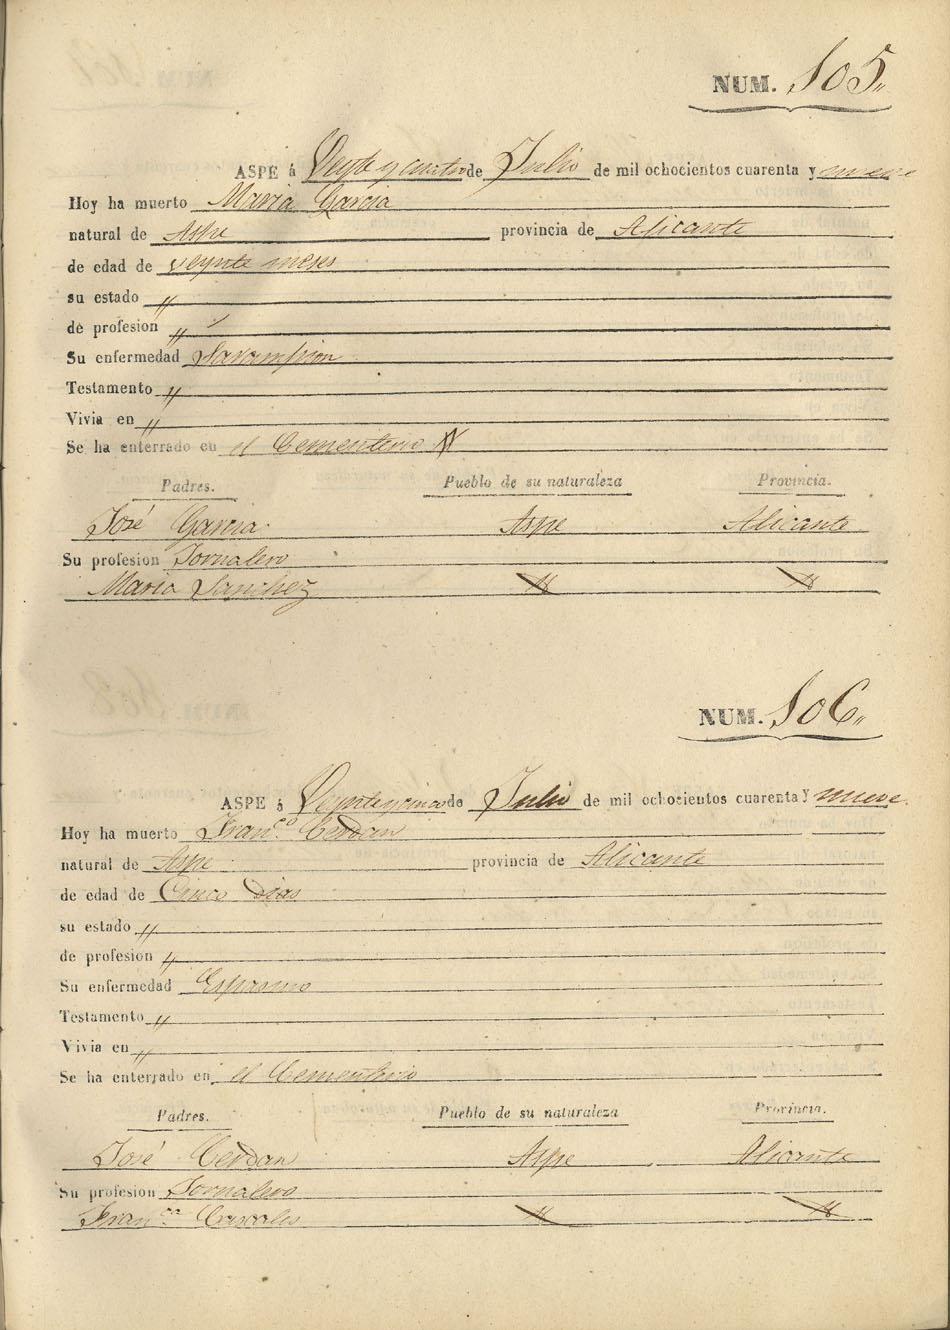 NUM. 105"
ASPE á Veynte y cuatro de Julio de mil ochocientos cuarenta y nueve
Hoy ha muerto Maria Garcia
natural de Aspe provincia de Alicante
de edad de veynte meses
su estado "
de profesion "
Su enfermedad Sarampion
Testamento "
Vivia en "
Se ha enterrado en el Cementerio
Padres. Pueblo de su naturaleza Provincia.
José Garcia. Aspe Alicante
Su profesion Jornalero
Maria Sanchez " "
NUM. 106"
ASPE á Veynte y cinco de Julio de mil ochocientos cuarenta y nueve.
Hoy ha muerto Fran.co Cerdan
natural de Aspe provincia de Alicante
de edad de Cinco dias
su estado "
de profesion "
Su enfermedad Espasmo
Testamento "
Vivia en "
Se ha enterrado en el Cementerio
Padres. Pueblo de su naturaleza Provincia.
José Cerdan Aspe Alicante
Su profesion Jornalero
Fran.ca " "